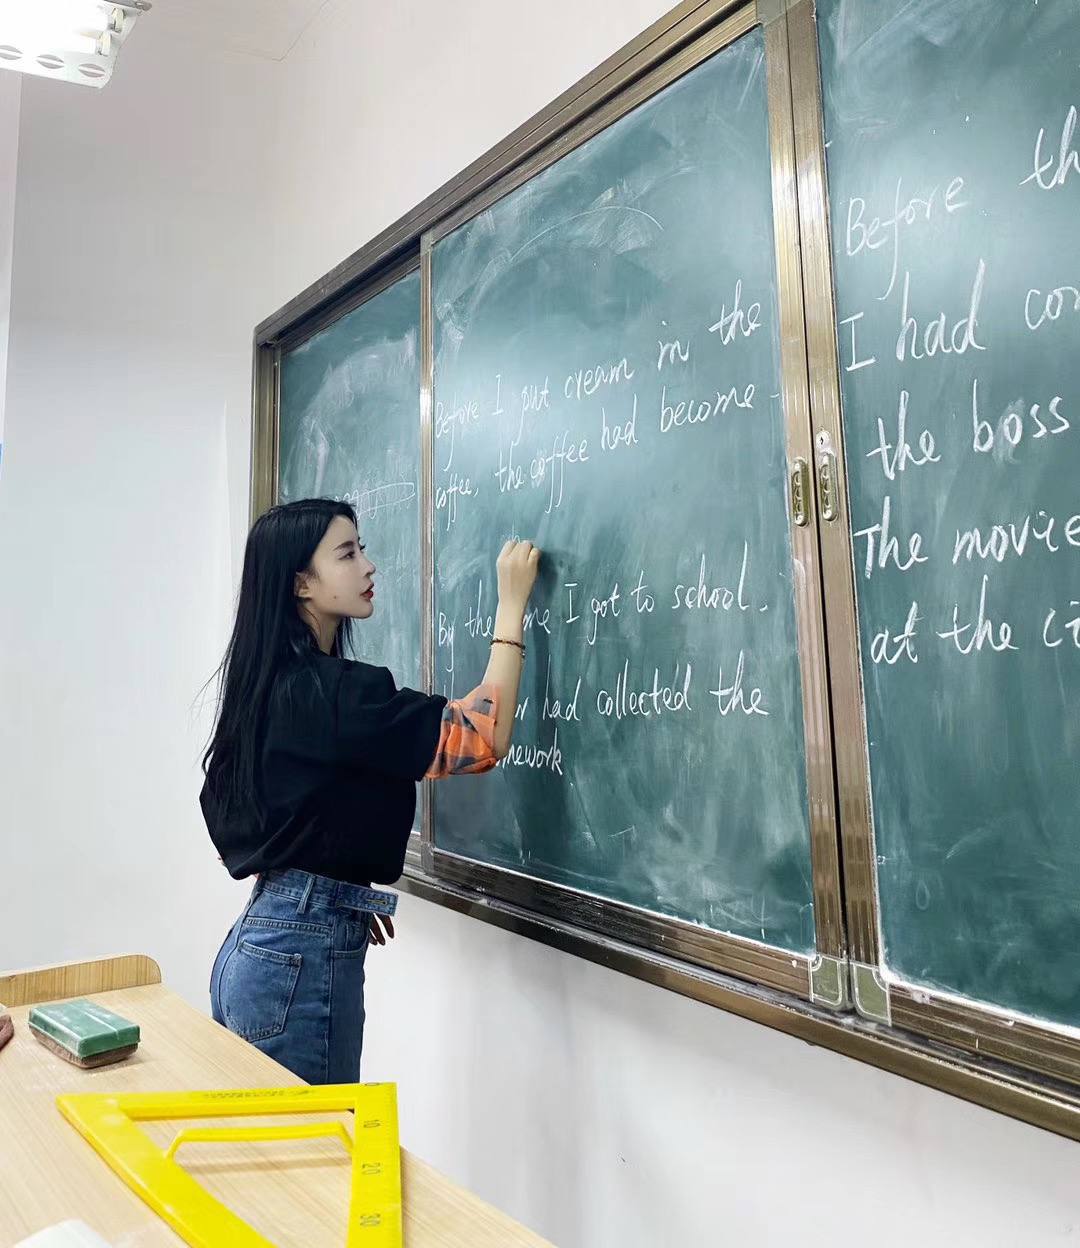 Before I put cream in the
coffee, the coffee had become
By the I got to school.
had collected the
Before
I had
the boss
The movie
at the
0
10
20
30